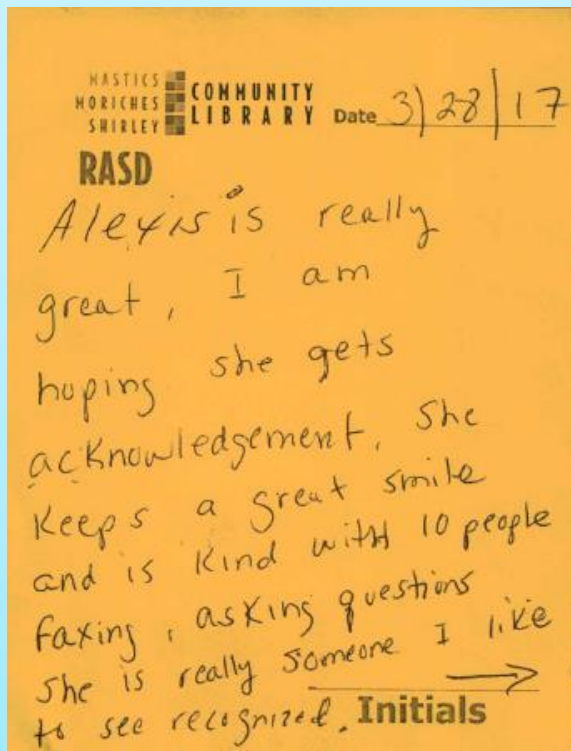 MASTICS
MORICHES
SHIRLEY
COMMUNITY
LIBRARY
Date 3/28/17
RASD
Alexis is really
great, I am
hoping she gets
acknowledgement. She
keeps a great smile
and is kind with 10 people
faxing, asking questions
she is really someone I like
to see recognized.
Initials